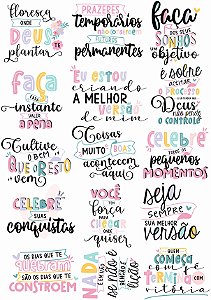 floresça
onde
DEUS te
plantar
PRAZERES
temporários
não constroem
futuros
permanentes
faça
dos seus
SONHOS
um
objetivo
faça
cada
instante
valer
a pena
EU ESTOU
criando
A MELHOR
VERSÃO
de mim
é sobre
aceitar
o processo
Deus
não perde
O CONTROLE
Cultive
O BEM
QUE O RESTO
vem
Coisas
MUITO BOAS
acontecem
aqui
celebre
todos os
pequenos
MOMENTOS
CELEBRE
SUAS
conquistas
VOCÊ
tem
força
PARA
CHEGAR
onde
quiser
seja
SEMPRE
SUA MELHOR
versão
OS DIAS QUE TE
quebram
SÃO OS DIAS QUE TE
CONSTROEM
NADA
é
QUEM
COMEÇA
com fé
TERMINA
com
vitória